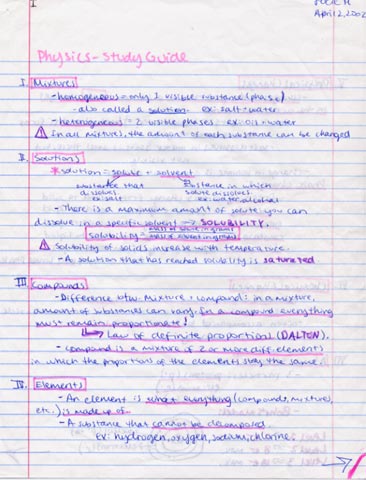 I
April 2, 2002
Physics - Study Guide
I. Mixtures
- homogeneous = only 1 visible substance (phase)
- also called a solution. ex: salt + water
- heterogeneous = 2 visible phases. ex: oil + water
! In all mixtures, the amount of each substance can be changed
II. Solutions
* solution = solute + solvent
substance that substance in which
dissolves solute dissolves
ex: salt ex: water, alcohol
- There is a maximum amount of solute you can
dissolve in a specific solvent → SOLUBILITY.
solubility = mass of solute in grams
mass of solvent in grams
! Solubility of solids increase with temperature.
- A solution that has reached solubility is saturated
III Compounds
- Difference btw. mixture + compound: in a mixture,
amount of substances can vary. In a compound everything
must remain proportionate!
Law of definite proportions (DALTEN).
- Compound is a mixture of 2 or more diff. elements
in which the proportions of the elements stay the same.
IV. Elements
- An element is what everything (compounds, mixtures,
etc.) is made up of.
- A substance that cannot be decomposed.
Ex: hydrogen, oxygen, sodium, chlorine.